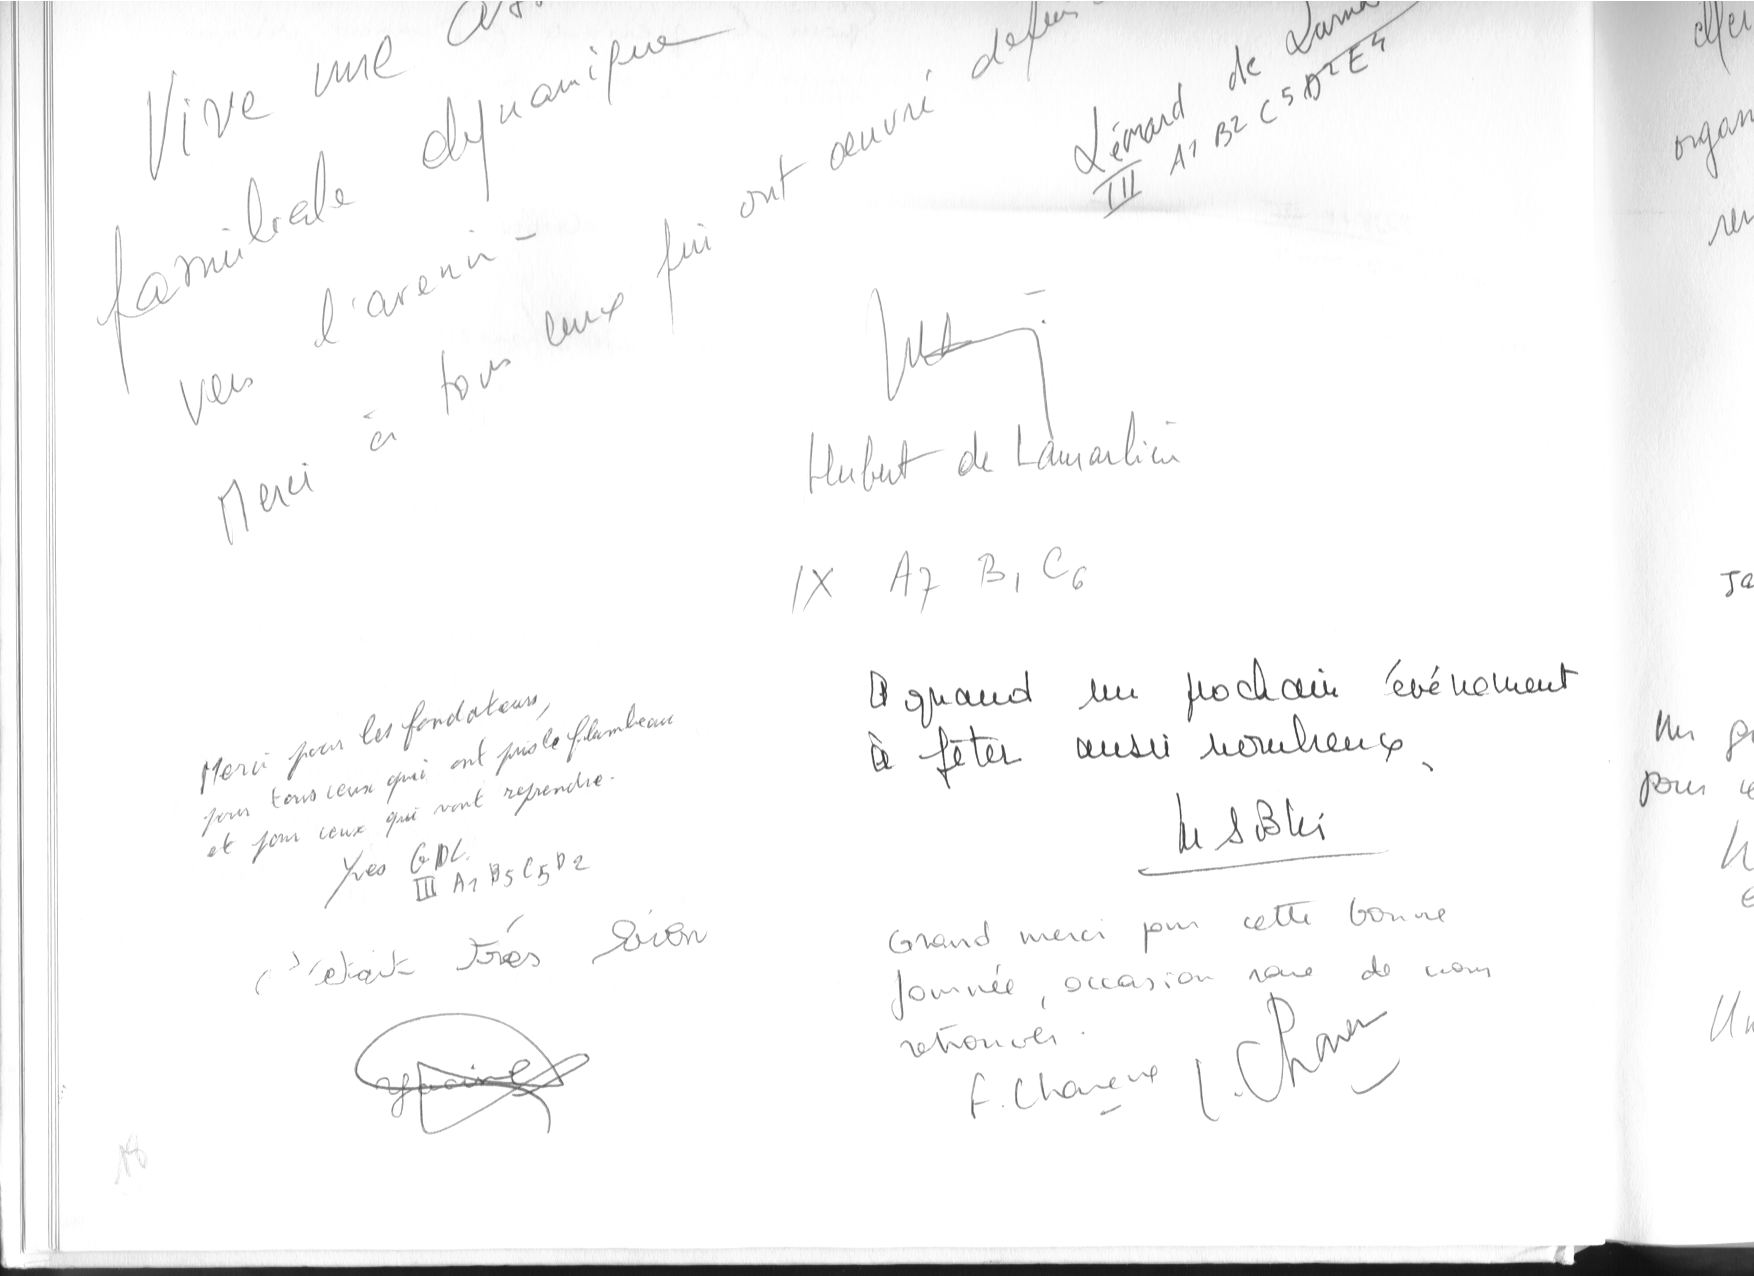 Vive une
familiale dynamique
vers l'avenir -
Merci à tous ceux qui ont œuvré
de
III A1 B2 C5 D2 E4
Hubert de Lamarlière
IX A7 B1 C6
Merci pour les fondateurs,
pour tous ceux qui ont pris le flambeau
et pour ceux qui vont reprendre.
Yves GDL
III A1 B5 C5 D2
C'était très bien
A quand un prochain événement
à fêter aussi nombreux.
Grand merci pour cette bonne
journée, occasion rare de nous
retrouver.
F.
18
organ
pour